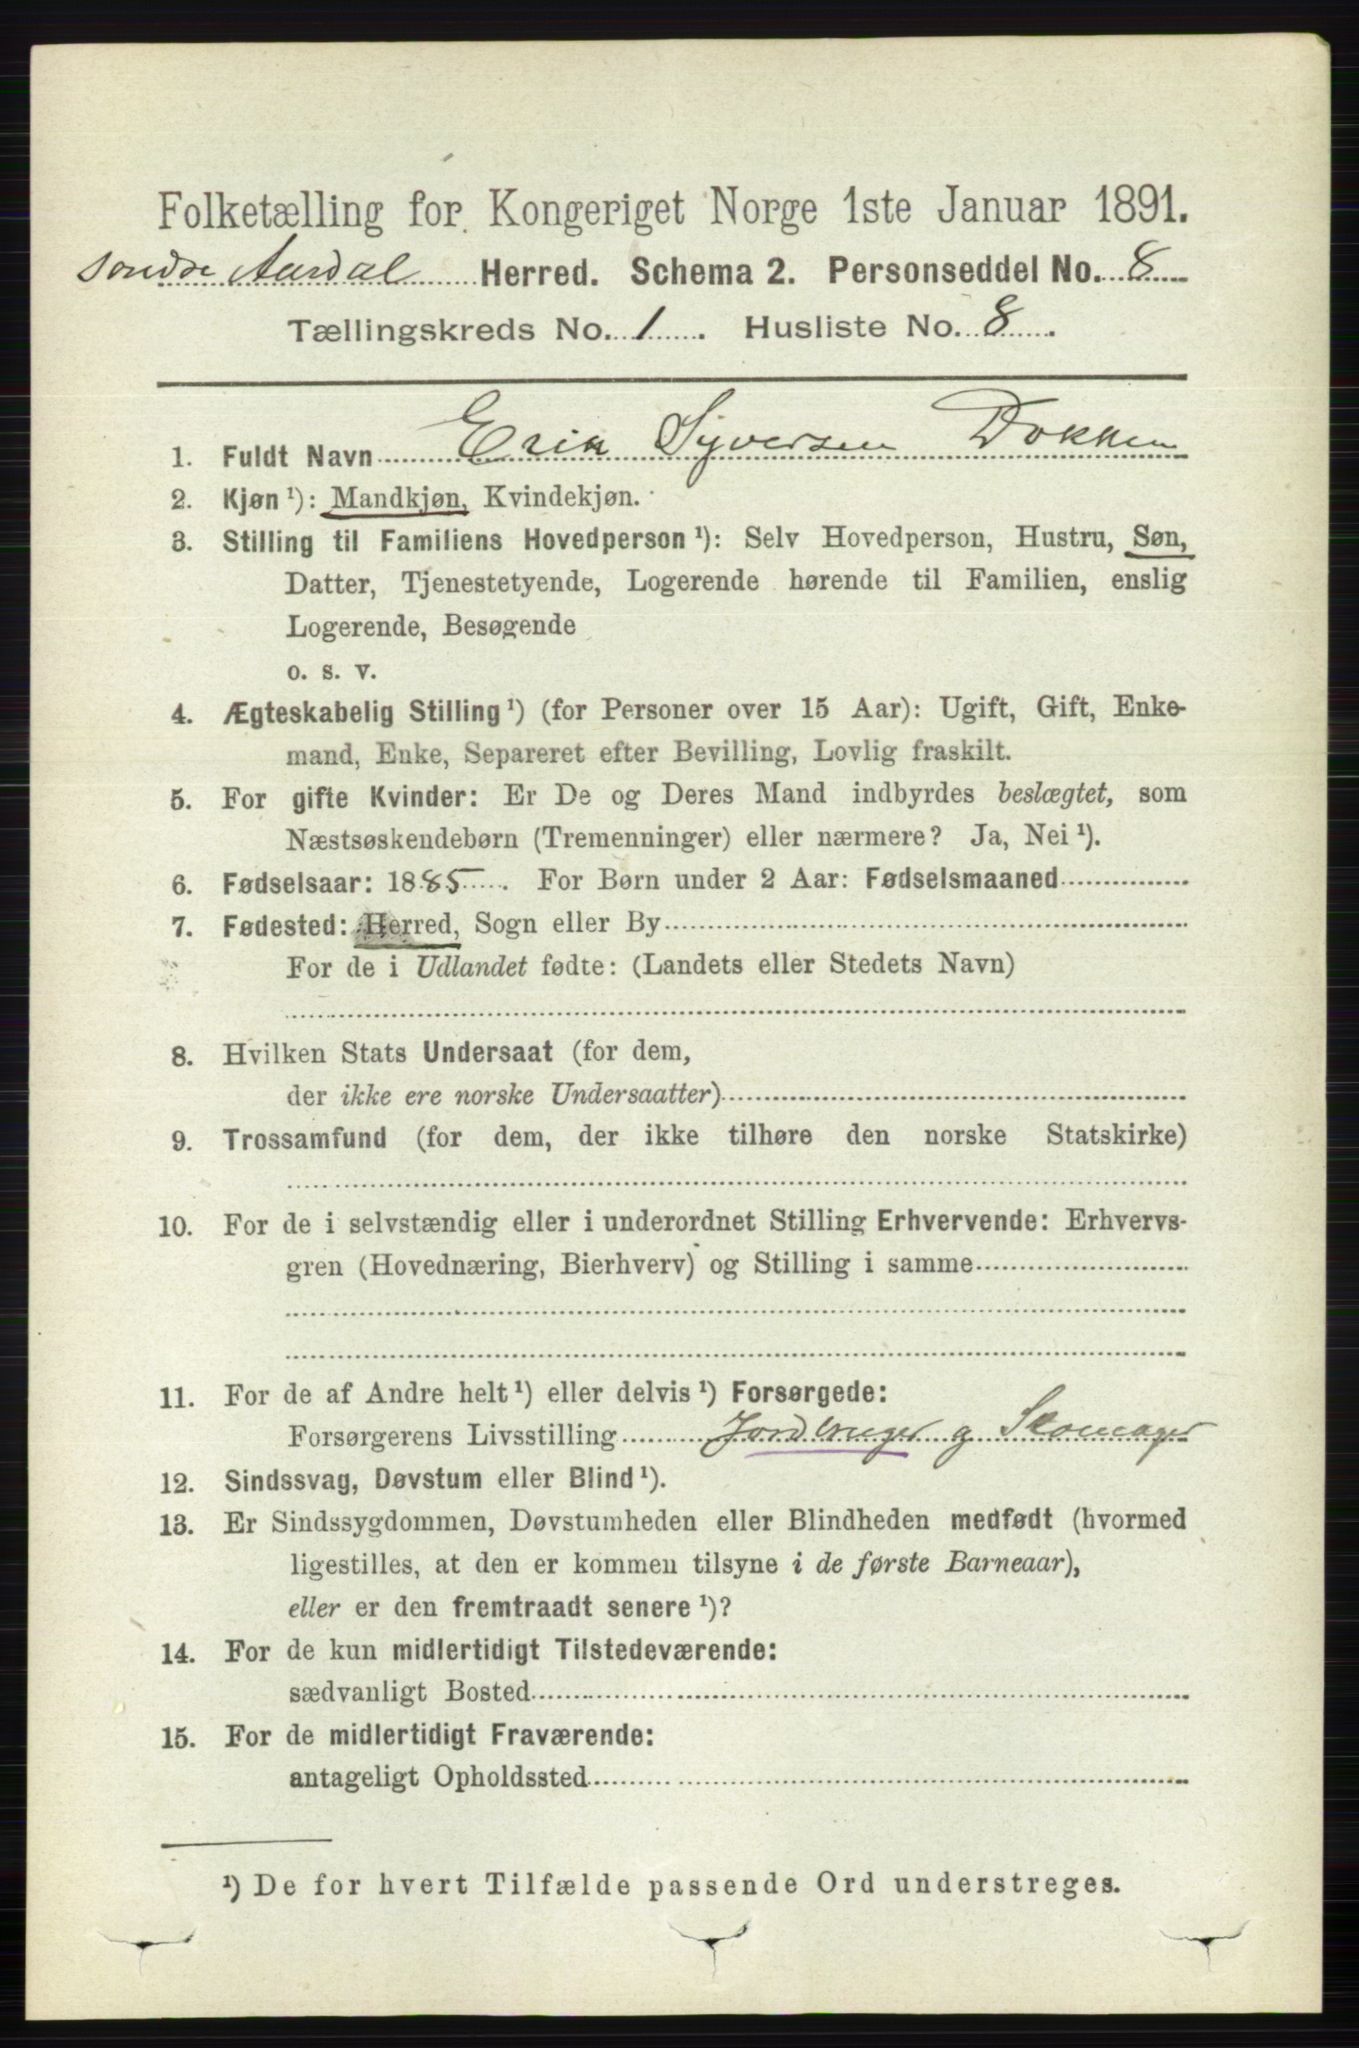 Folketælling for Kongeriget Norge 1ste Januar 1891.
söndre Aurdal Herred. Schema 2. Personseddel No. 8
Tællingskreds No. 1. Husliste No. 8.
1. Fuldt Navn Erik Syversen Dokken
2. Kjøn ¹): Mandkjøn, Kvindekjøn.
3. Stilling til Familiens Hovedperson ¹): Selv Hovedperson, Hustru, Søn,
Datter, Tjenestetyende, Logerende hørende til Familien, enslig
Logerende, Besøgende
o. s. v.
4. Ægteskabelig Stilling ¹) (for Personer over 15 Aar): Ugift, Gift, Enke-
mand, Enke, Separeret efter Bevilling, Lovlig fraskilt.
5. For gifte Kvinder: Er De og Deres Mand indbyrdes beslægtet, som
Næstsøskendebørn (Tremenninger) eller nærmere? Ja, Nei ¹).
6. Fødselsaar: 1885. For Børn under 2 Aar: Fødselsmaaned
7. Fødested: Herred, Sogn eller By
For de i Udlandet fødte: (Landets eller Stedets Navn)
8. Hvilken Stats Undersaat (for dem,
der ikke ere norske Undersaatter)
9. Trossamfund (for dem, der ikke tilhøre den norske Statskirke)
10. For de i selvstændig eller i underordnet Stilling Erhvervende: Erhvervs-
gren (Hovednæring, Bierhverv) og Stilling i samme
11. For de af Andre helt ¹) eller delvis ¹) Forsørgede:
Forsørgerens Livsstilling Jordbruger g Skomager
12. Sindssvag, Døvstum eller Blind ¹).
13. Er Sindssygdommen, Døvstumheden eller Blindheden medfødt (hvormed
ligestilles, at den er kommen tilsyne i de første Barneaar),
eller er den fremtraadt senere ¹)?
14. For de kun midlertidigt Tilstedeværende:
sædvanligt Bosted
15. For de midlertidigt Fraværende:
antageligt Opholdssted
¹) De for hvert Tilfælde passende Ord understreges.